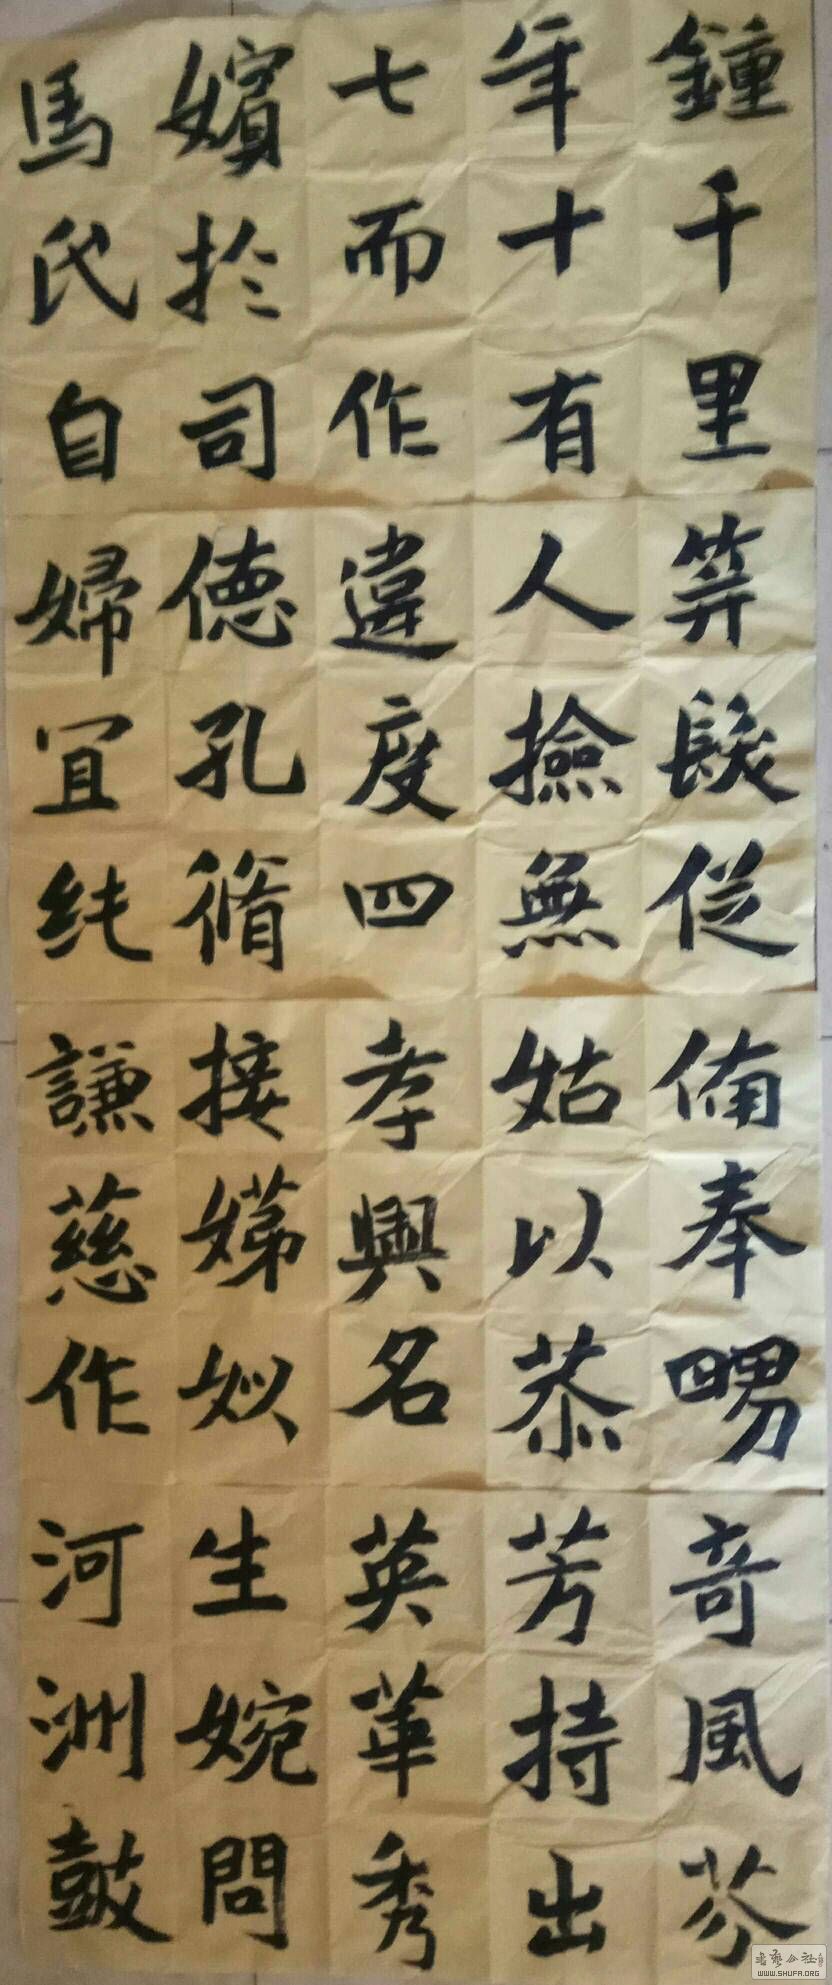 鍾千里笄髮從備奉甥奇風芬
年十有人撿無姑以恭芳持出
七而作違度四孝興名英華秀
嬪於司德孔脩接娣姒生婉問
馬氏自婦宜純謙慈作河洲鼓
書藝公社
WWW.SHUFA.ORG